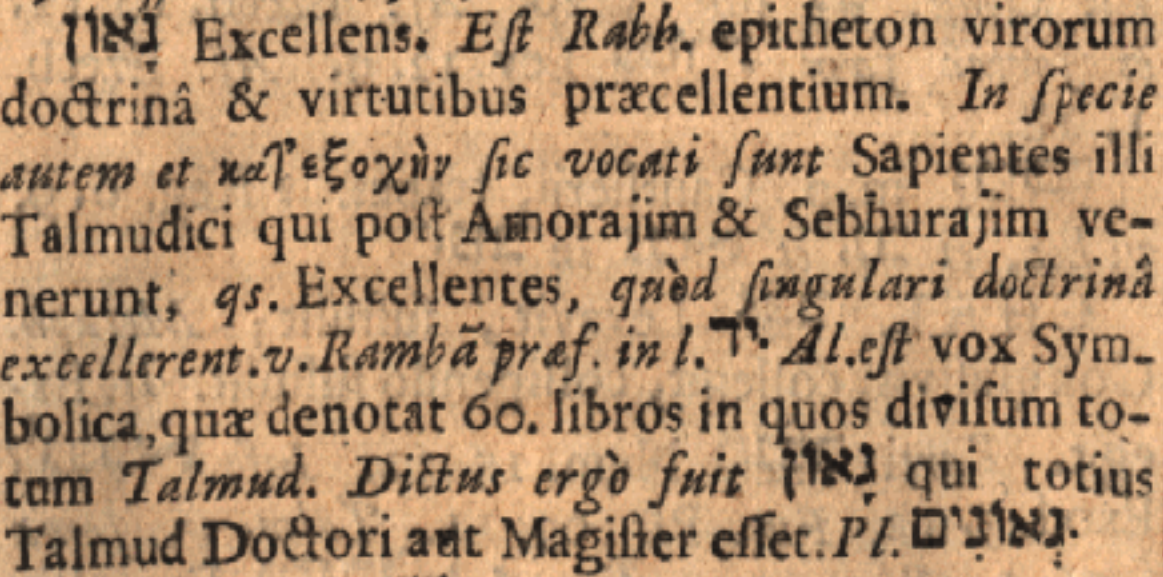 גָּאוֹן Excellens. Eſt Rabb. epitheton virorum
doctrinâ & virtutibus præcellentium. In ſpecie
autem et κατ᾽εξοχὴν ſic vocati ſunt Sapientes illi
Talmudici qui poſt Amorajim & Sebhurajim ve-
nerunt, qs. Excellentes, quòd ſingulari doctrinâ
excellerent. v. Rambã præf. in l. יד. Al. eſt vox Sym-
bolica, quæ denotat 60. libros in quos diviſum to-
tum Talmud. Dictus ergò fuit גָּאוֹן qui totius
Talmud Doctori aut Magiſter eſſet. Pl. גְּאוֹנִים.